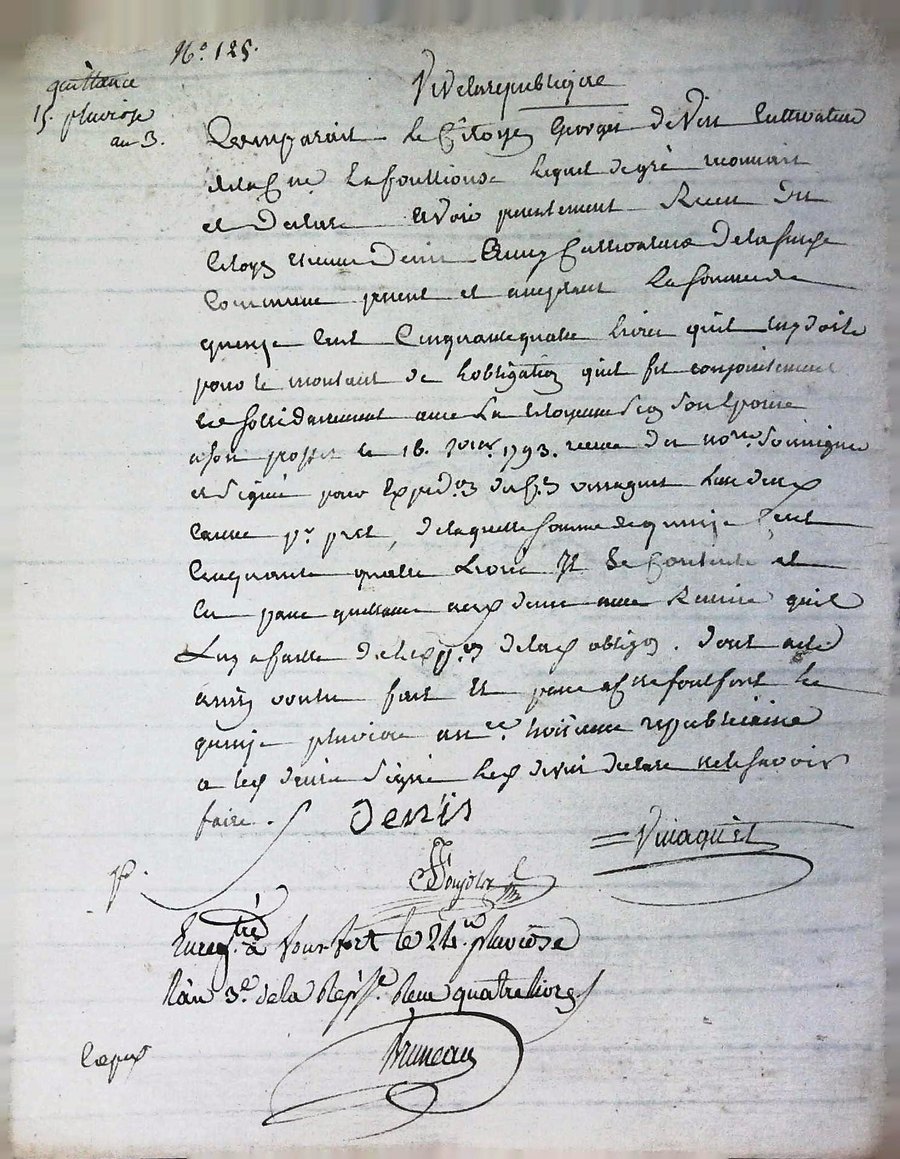 N.° 125.
quittance
15. pluviose
an 3.
Vive la republique
Comparait le Citoyen Georges devin Cultivateur
de la Cne La fouillouse lequel de gré reconnait
et declare avoir presentement Receu du
Citoyen Denis Cultivateur de la susd
Commune present et acceptant La somme de
quinze Cent Cinquante quatre livres quil luy doit
pour le montant de lobligation quil fit conjointement
et sollidairement avec La Citoyenne
a son proffit le 16. 1793. receue du nore. soussigné
et signée pour Expedon
Cause pt. pret, de laquelle somme de quinze Cent
Cinquante quatre Livres Il Se Contente et
En passe quittance aud denis avec Remise quil
Luy a faitte de lexpon de lad obligon. dont acte
ainsy voulu fait et passé a le
quinze pluviose an troisieme republicaine
a led denis signé led devin declare ne le savoir
faire.
Denis
Viraguet
Enregtré à Fonsfort le 24. pluviôse
l'an 3.e de la Rép. Receu quatre livres
Bruneau